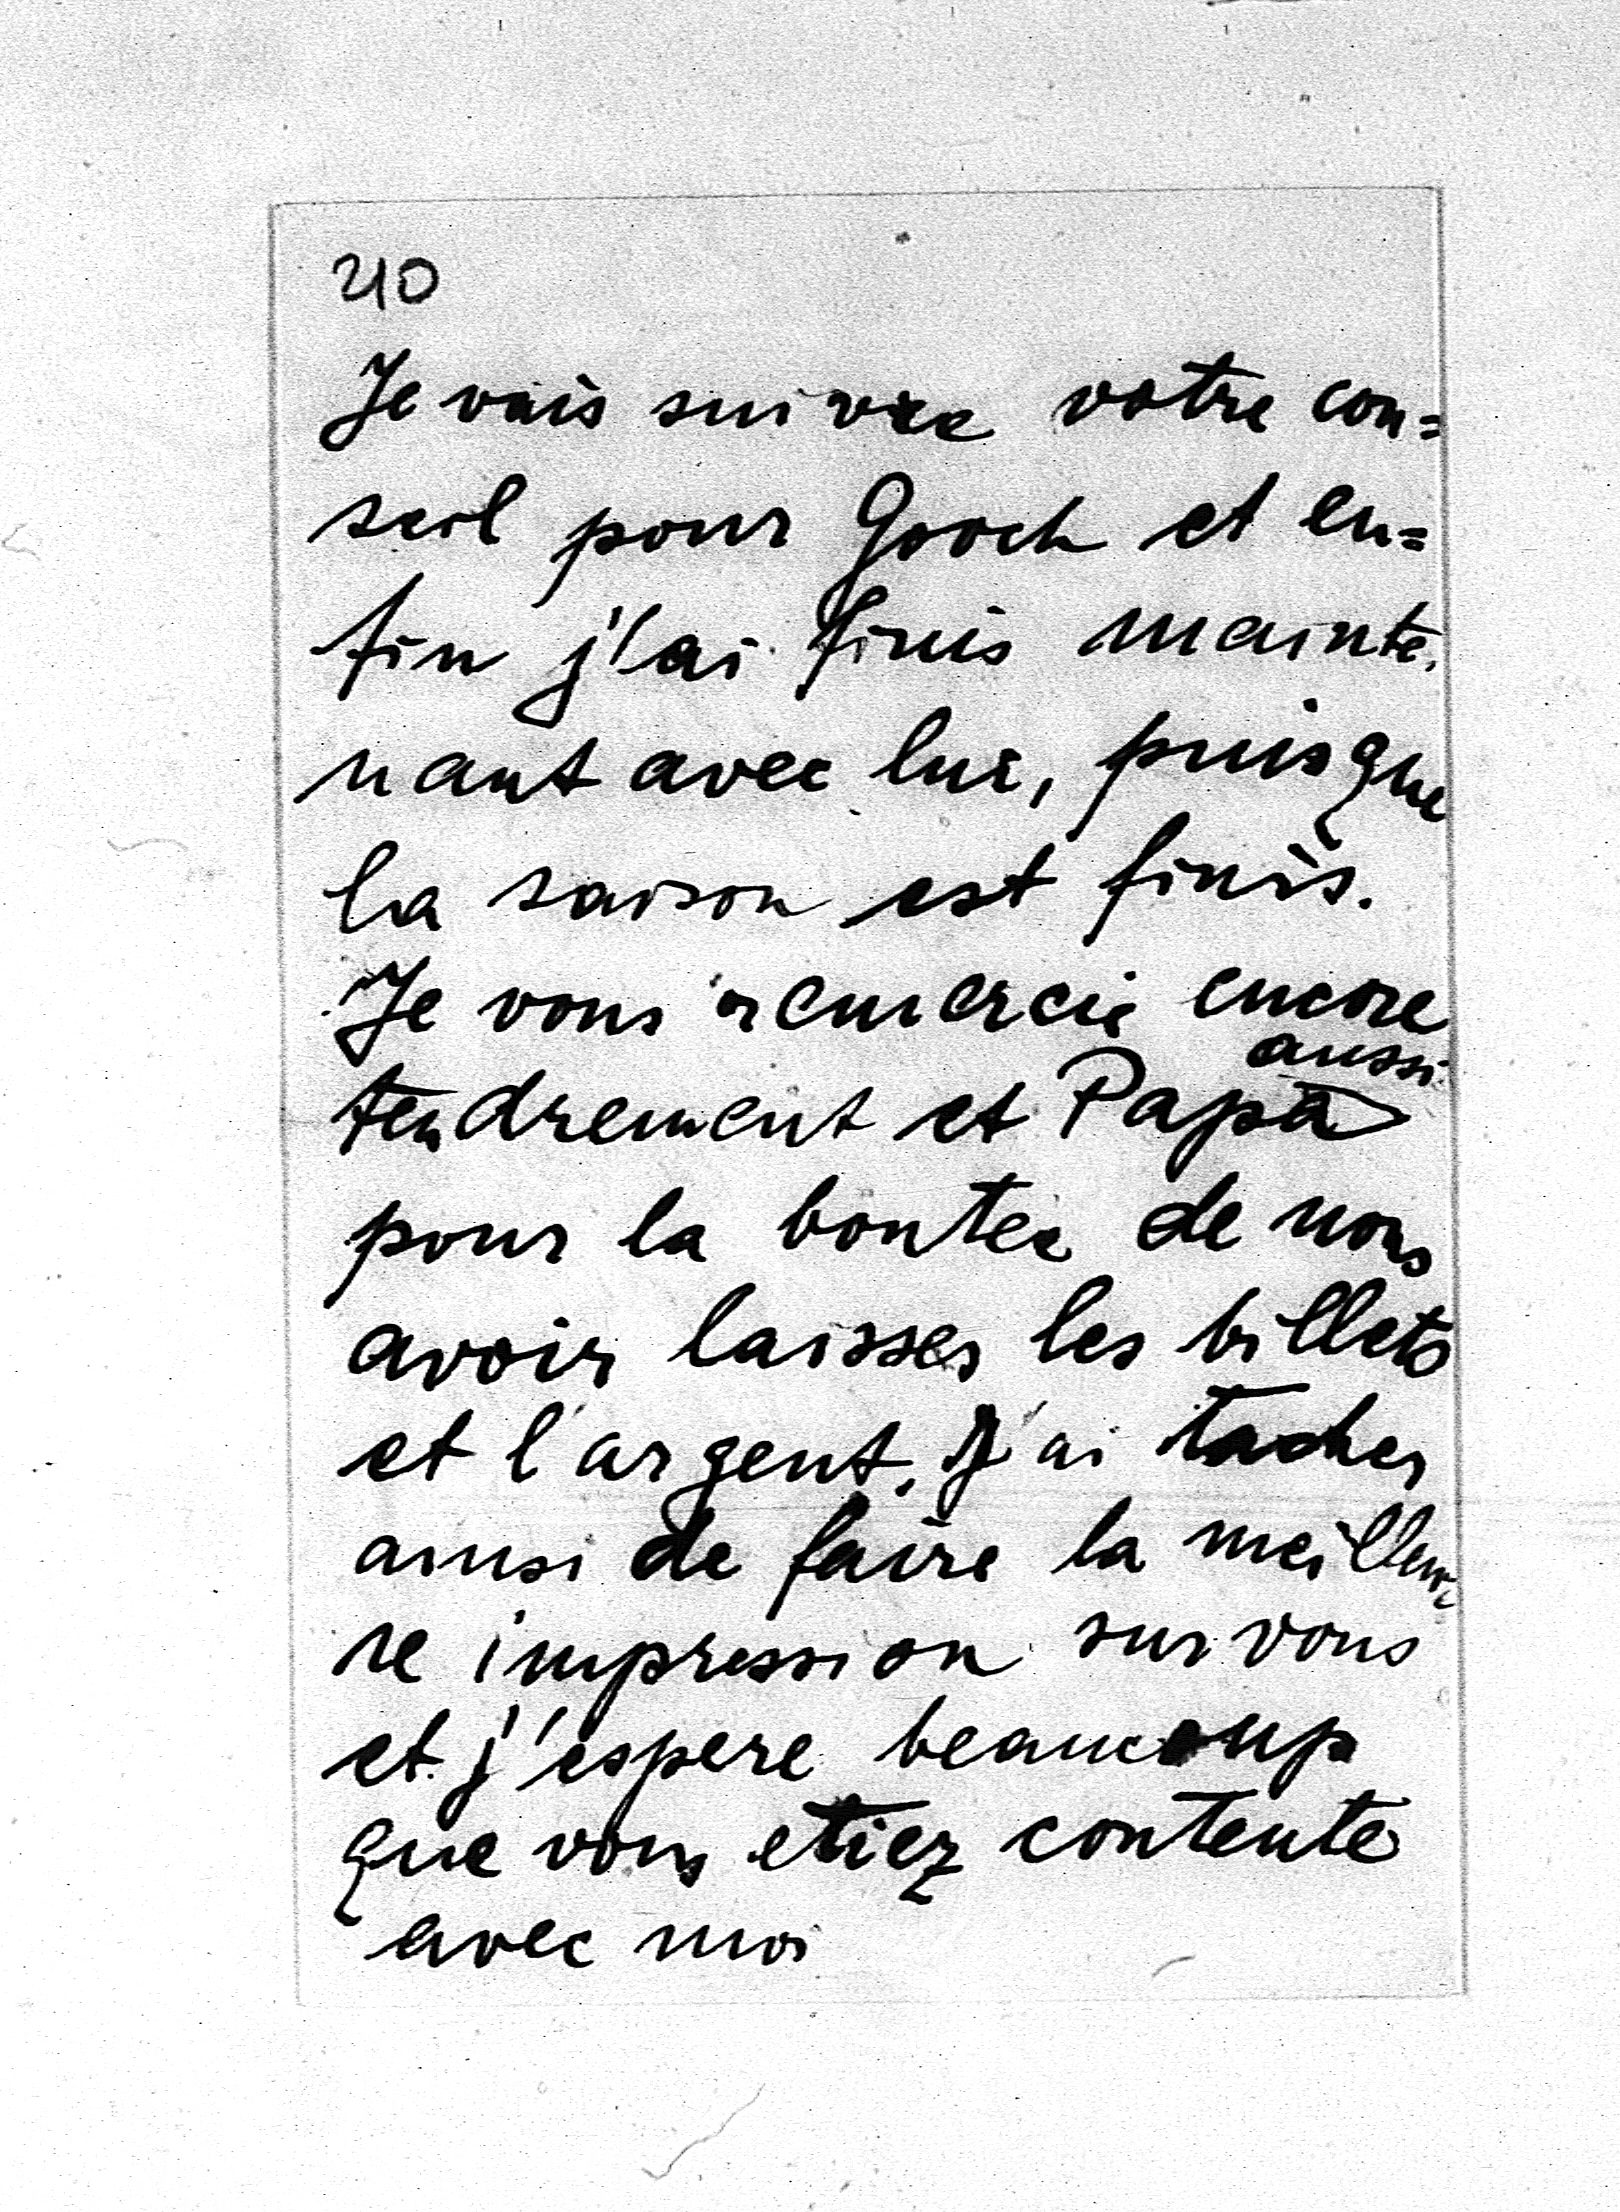 210
Je vais suivre votre con=
seil pour Gooch et en=
fin j'ai finis mainte.
nant avec lui, puisque
la saison est finis.
Je vous remercie encore
aussi
tendrement et Papa
pour la bontee de nous
avoir laisser les billets
et l'argent. J'ai tacher
ainsi de faire la meilleu=
re impression sur vous
et j'espere beaucoup
que vous etiez contente
avec moi